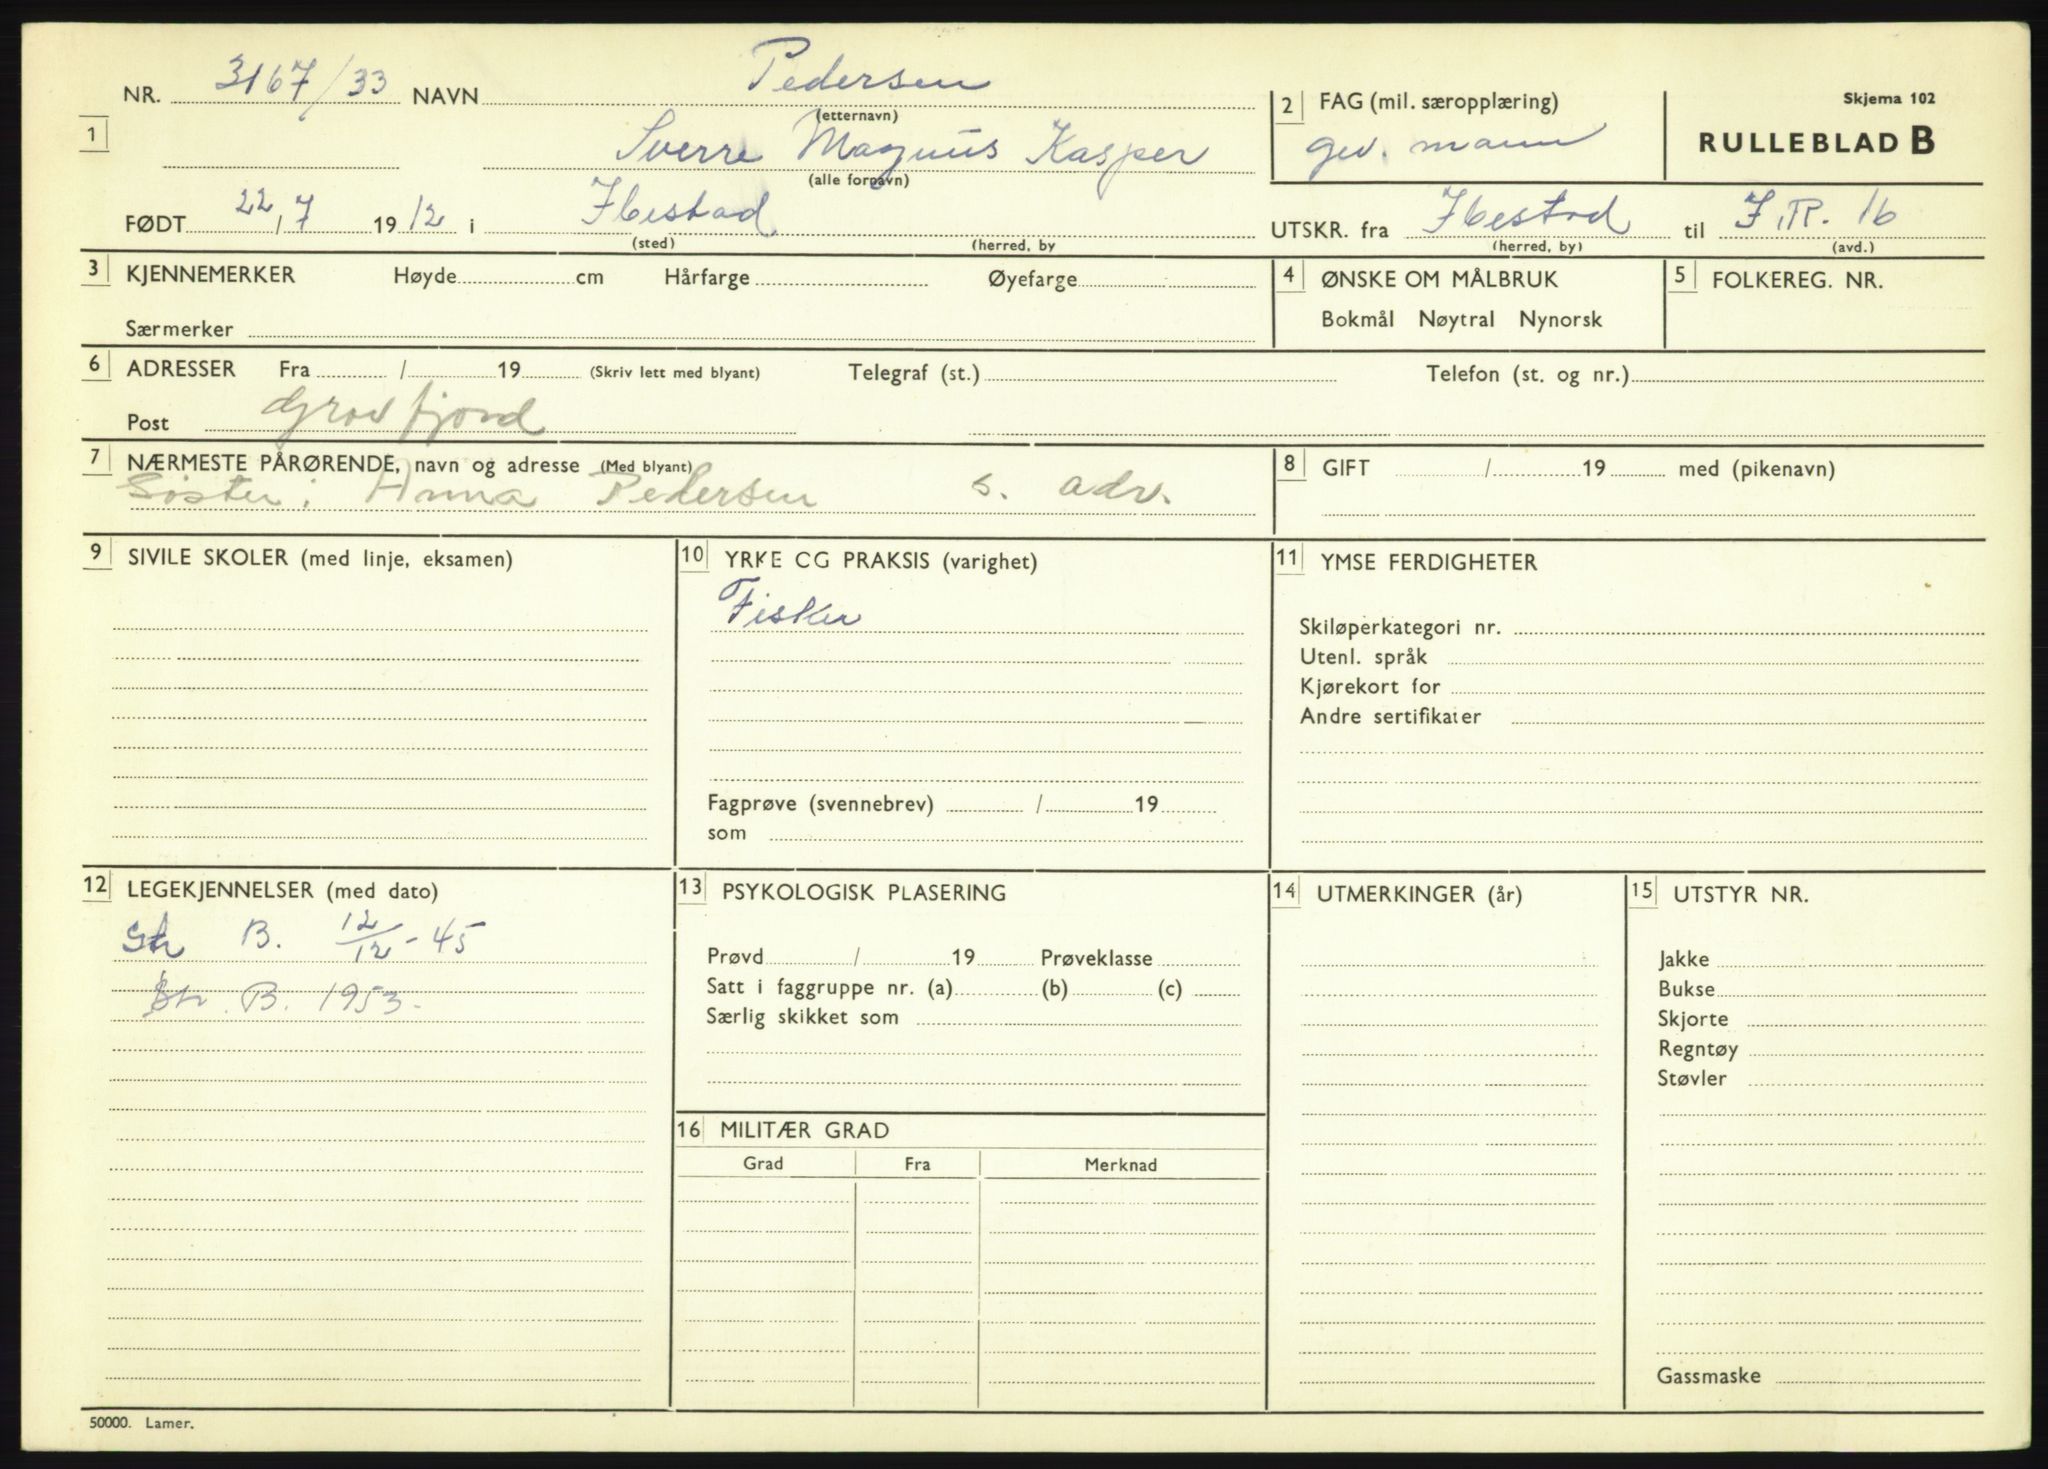 NR. 3167/33 NAVN Pedersen
(etternavn)
1 Sverre Magnus Kasper
(alle fornavn)
FØDT 22/7 1912 i Ibestad
(sted) (herred, by
2 FAG (mil. særopplæring)
gev. mann
Skjema 102
RULLEBLAD B
UTSKR. fra Ibestad til I.R. 16
(herred, by) (avd.)
3 KJENNEMERKER Høyde cm Hårfarge Øyefarge
Særmerker
4 ØNSKE OM MÅLBRUK
Bokmål Nøytral Nynorsk
5 FOLKEREG. NR.
6 ADRESSER Fra / 19 (Skriv lett med blyant) Telegraf (st.) Telefon (st. og nr.)
Post Grovfjord
7 NÆRMESTE PÅRØRENDE, navn og adresse (Med blyant)
Søster: Anna Pedersen s. adr.
8 GIFT / 19 med (pikenavn)
9 SIVILE SKOLER (med linje, eksamen)
10 YRKE CG PRAKSIS (varighet)
Fisker
Fagprøve (svennebrev) / 19
som
11 YMSE FERDIGHETER
Skiløperkategori nr.
Utenl. språk
Kjørekort for
Andre sertifikater
12 LEGEKJENNELSER (med dato)
Str B. 12/12-45
Str. B. 1953.
13 PSYKOLOGISK PLASERING
Prøvd / 19 Prøveklasse
Satt i faggruppe nr. (a) (b) (c)
Særlig skikket som
14 UTMERKINGER (år)
15 UTSTYR NR.
Jakke
Bukse
Skjorte
Regntøy
Støvler
Gassmaske
16 MILITÆR GRAD
Grad Fra Merknad
50000. Lamer.